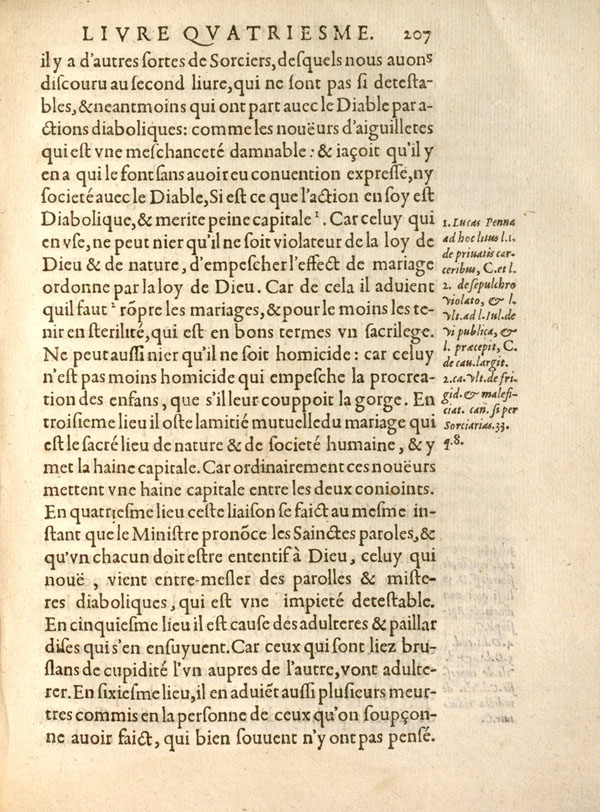 LIVRE QVATRIESME. 207
il y a d'autres ſortes de Sorciers, deſquels nous auons
diſcouru au ſecond liure, qui ne ſont pas ſi deteſta-
bles, & neantmoins qui ont part auec le Diable par a-
ctions diaboliques: comme les noüeurs d'aiguilletes
qui eſt vne meſchanceté damnable: & iaçoit qu'il y
en a qui le font ſans auoir eu conuention expreſſe, ny
ſocieté auec le Diable, Si eſt ce que l'action en ſoy eſt
Diabolique, & merite peine capitale ¹. Car celuy qui
en vſe, ne peut nier qu'il ne ſoit violateur de la loy de
Dieu & de nature, d'empeſcher l'effect de mariage
ordonne par la loy de Dieu. Car de cela il aduient
quil faut ² rõpre les mariages, & pour le moins les te-
nir en ſterilité, qui eſt en bons termes vn ſacrilege.
Ne peut auſſi nier qu'il ne ſoit homicide: car celuy
n'eſt pas moins homicide qui empeſche la procrea-
tion des enfans, que s'il leur couppoit la gorge. En
troiſieſme lieu il oſte lamitié mutuelle du mariage qui
eſt le ſacré lieu de nature & de ſocieté humaine, & y
met la haine capitale. Car ordinairement ces noüeurs
mettent vne haine capitale entre les deux conioints.
En quatrieſme lieu ceſte liaiſon ſe faict au meſme in-
ſtant que le Miniſtre pronõce les Sainctes paroles, &
qu'vn chacun doit eſtre ententif à Dieu, celuy qui
nouë, vient entre-meſler des parolles & miſte-
res diaboliques, qui eſt vne impieté deteſtable.
En cinquieſme lieu il eſt cauſe des adulteres & paillar
diſes qui s'en enſuyuent. Car ceux qui ſont liez bru-
ſlans de cupidité l'vn aupres de l'autre, vont adulte-
rer. En sixieſme lieu, il en aduiẽt auſſi pluſieurs meur-
tres commis en la perſonne de ceux qu'on ſoupçon-
ne auoir faict, qui bien ſouuent n'y ont pas penſé.
1. Lucas Penna
ad hoc litus l.1.
de priuatis car-
ceribus, C. et l.
2. de ſepulchro
violato, & l.
vlt. ad l. Iul. de
vi publica, &
l. præcepit, C.
de cau. largit.
2. ca. vlt. de fri-
gid. & malefi-
ciat. can. ſi per
Sorciarias. 33.
q. 8.